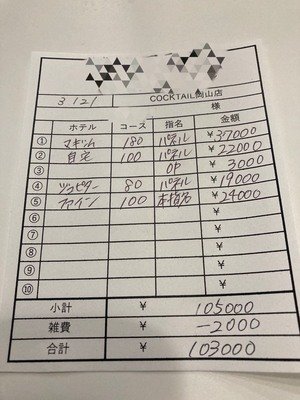 3 121
COCKTAIL岡山店
ホテル コース 指名 金額
① マキシム 180 パネル ¥37000
② 自宅 100 パネル ¥22000
③ OP ¥3000
④ ジュピター 80 パネル ¥19000
⑤ ファイン 100 本指名 ¥24000
⑥ ¥
⑦ ¥
⑧ ¥
⑨ ¥
⑩ ¥
小計 ¥ 105000
雑費 ¥ -2000
合計 ¥ 103000